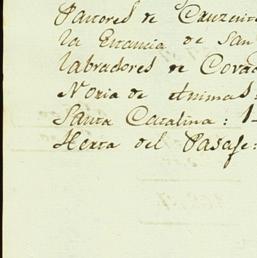 Pastores de Cruzeiro
la Estancia de San
Labradores de Cova
Noria de Animas:
Santa Catalina: 1
Herta del Pasaje: